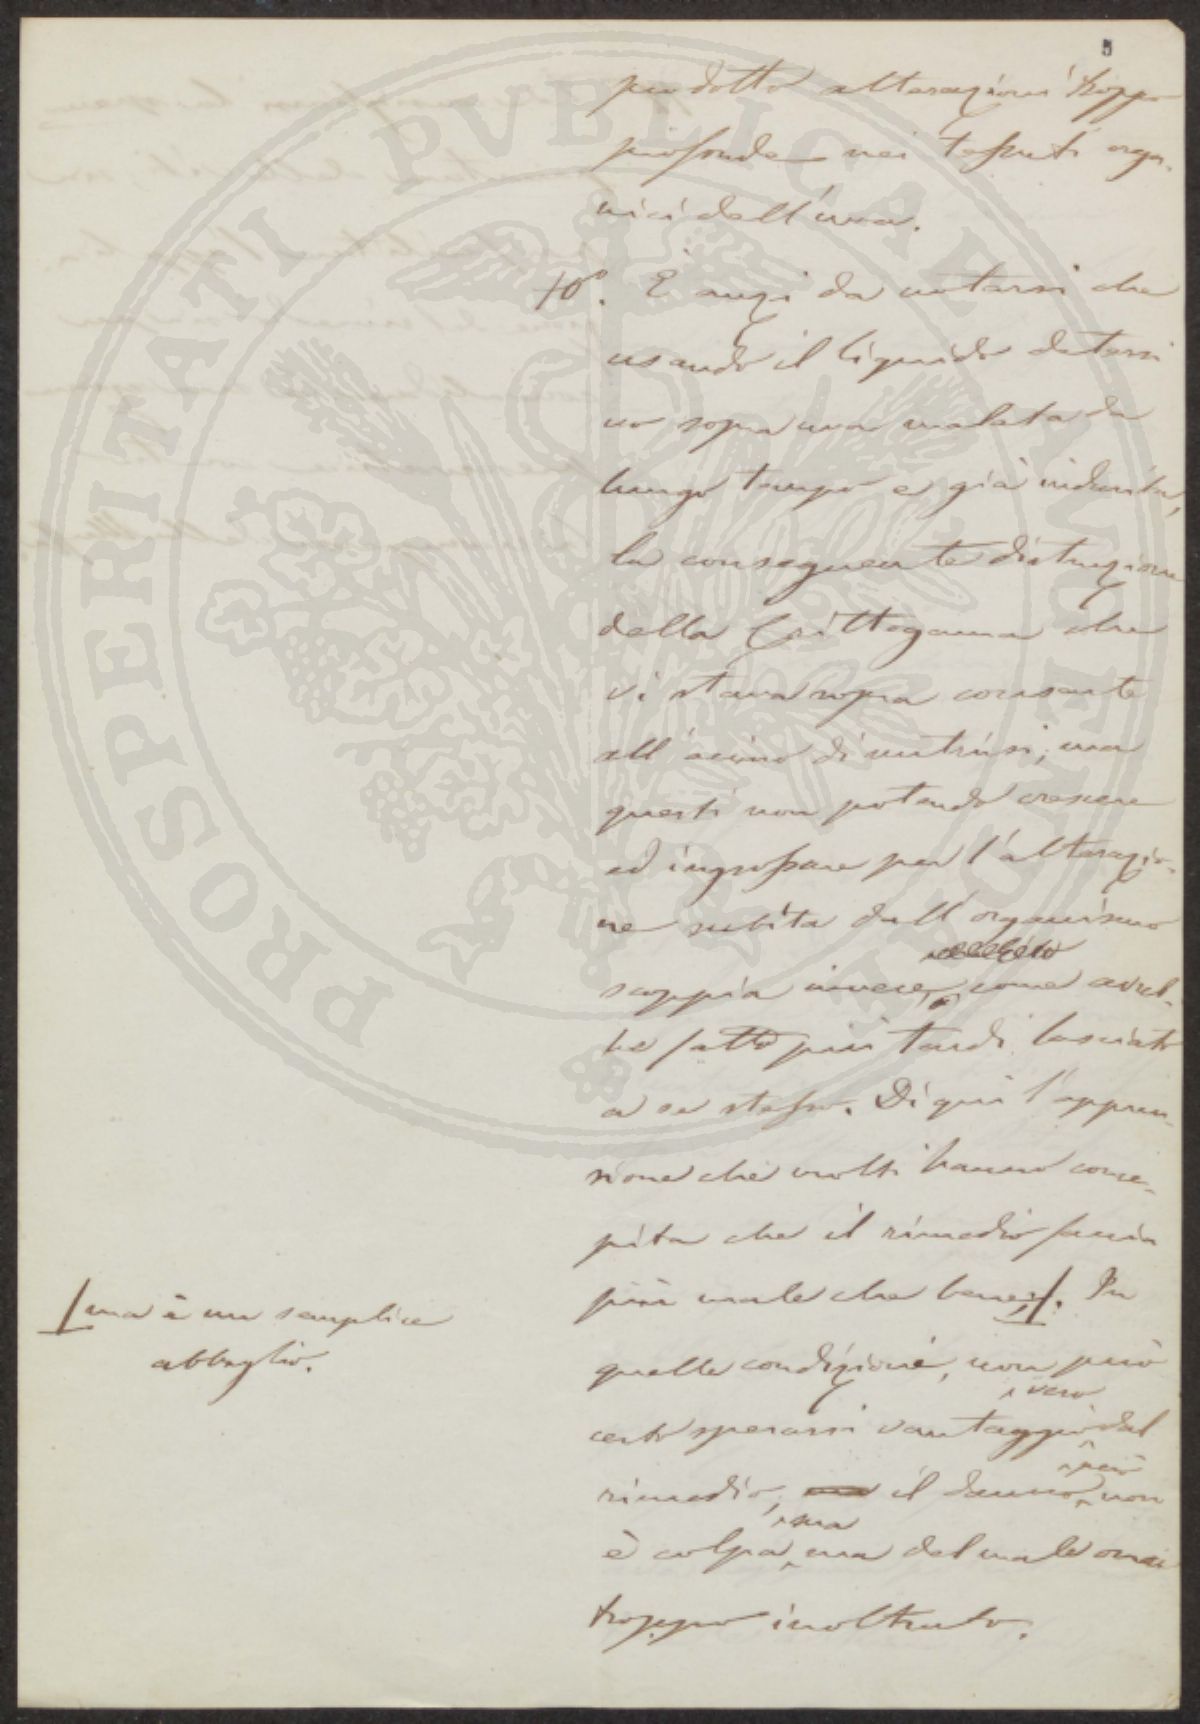 5
prodotto alterazioni troppo
profonde nei tessuti orga-
nici dell'uva.
10°. È anzi da notarsi che
usando il liquido detersi
vo sopra uva malata da
lungo tempo e già indurita,
la conseguente distruzione
della Crittogama che
vi stava sopra consente
all'acino di nutrirsi; ma
questi non potendo crescere
ed ingrossare per l'alterazio-
ne subita dall'organismo
scoppia invece, come avreb-
be fatto più tardi lasciato
a se stesso. Di qui l'appren-
sione che molti hanno conce-
pita che il rimedio faccia
più male che bene;/. In
/ma è un semplice
abbaglio.
quelle condizioni, non può
certo sperarsi vantaggio vero dal
rimedio, ma il danno però non
è colpa sua ma del male omai
troppo inoltrato.
PROSPERITATI PVBLICAE AVGENDAE